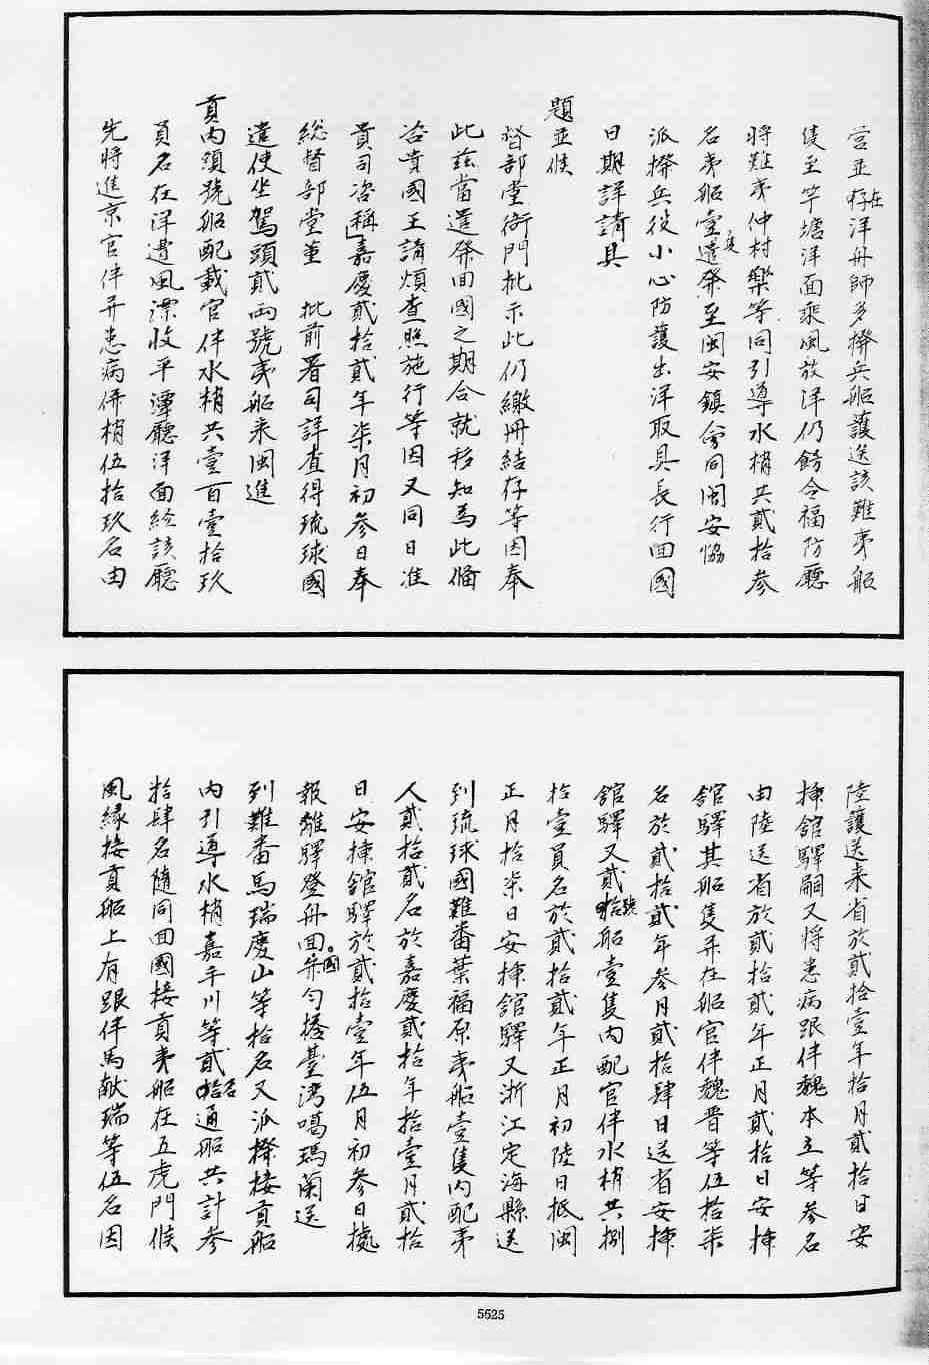 營並存在洋舟師多撥兵船護送該難夷船
隻至竿塘洋面乘風放洋仍飭令福防廳
將難夷仲村樂等同引導水梢共貳拾參
名夷船壹隻遣發至閩安鎮會同閩安協
派撥兵役小心防護出洋取具長行回國
日期詳請具
題並候
督部堂衙門批示此仍繳冊結存等因奉
此玆當遣發回國之期合就移知為此俻
咨貴國王請煩查照施行等因又同日准
貴司咨稱嘉慶貳拾貳年柒月初參日奉
總督部堂董　批前署司詳查得琉球國
遣使坐駕頭貳兩號夷船来閩進
貢內頭號船配載官伴水梢共壹百壹拾玖
員名在洋遭風漂收平潭廳洋面經該廳
先將進京官伴并患病併梢伍拾玖名由
陸護送来省於貳拾壹年拾月貳拾日安
揷舘驛嗣又將患病跟伴魏本立等參名
由陸送省於貳拾貳年正月貳拾日安揷
舘驛其船隻并在船官伴魏晋等伍拾柒
名於貳拾貳年參月貳拾肆日送省安揷
舘驛又貳號船壹隻內配官伴水梢共捌
拾壹員名於貳拾貳年正月初陸日抵閩
正月拾柒日安揷舘驛又浙江定海縣送
到琉球國難番葉福原夷船壹隻內配夷
人貳拾貳名於嘉慶貳拾年拾壹月貳拾
日安揷舘驛於貳拾壹年伍月初參日據
報離驛登舟回國并勻撥臺湾噶瑪蘭送
到難番馬瑞慶山等拾名又派撥接貢船
內引導水梢嘉手川等貳名通船共計參
拾肆名隨同回國接貢夷船在五虎門候
風緣接貢船上有跟伴馬献瑞等伍名因
5625